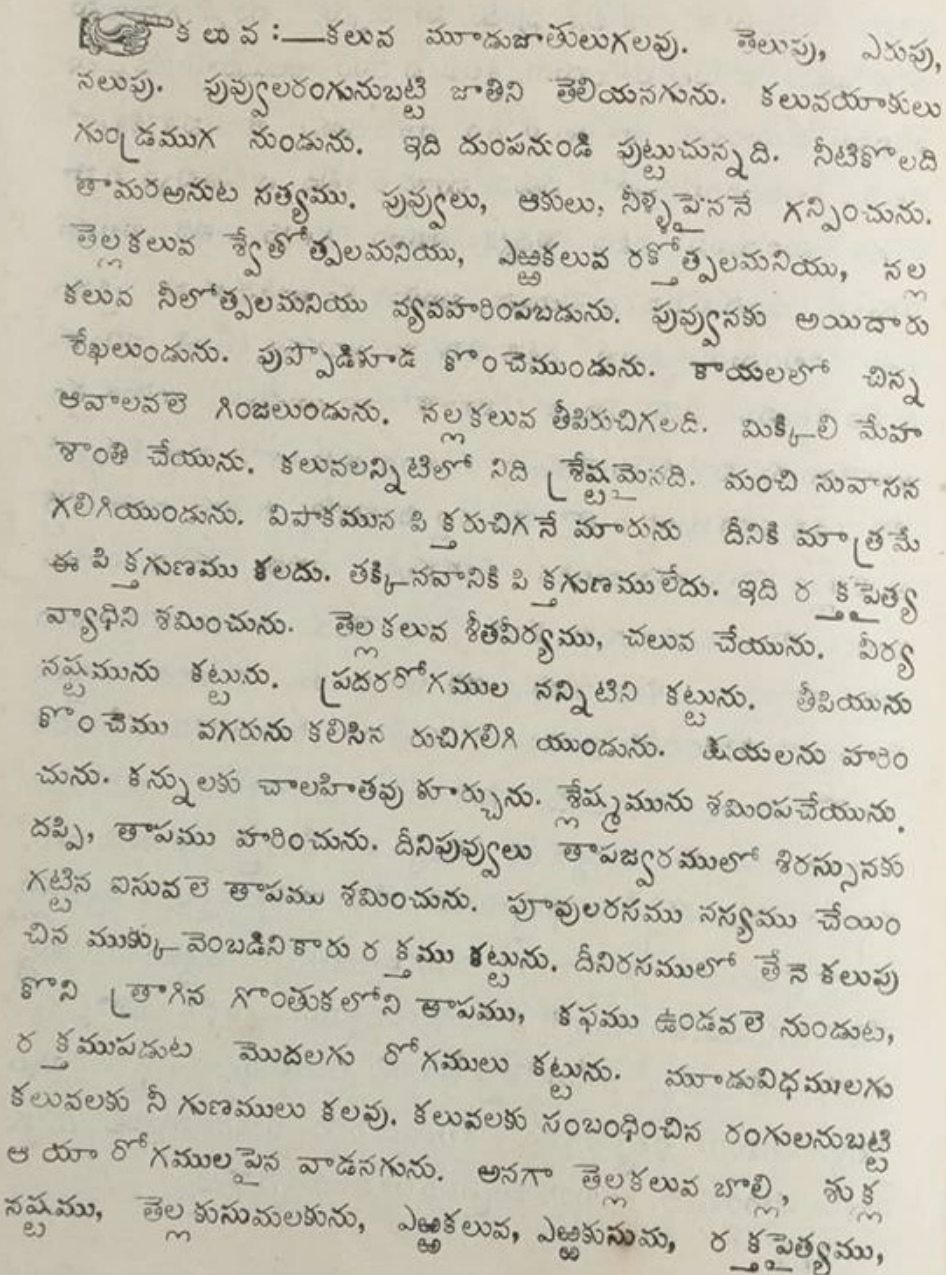 కలువ :—కలువ మూడుజాతులుగలవు. తెలుపు, ఎరుపు,
నలుపు. పువ్వులరంగునుబట్టి జాతిని తెలియనగును. కలువయాకులు
గుండ్రముగ నుండును. ఇది దుంపనుండి పుట్టుచున్నది. నీటికొలది
తామరఅనుట సత్యము. పువ్వులు, ఆకులు, నీళ్ళపైననే గన్పించును.
తెల్లకలువ శ్వేతోత్పలమనియు, ఎఱ్ఱకలువ రక్తోత్పలమనియు, నల్ల
కలువ నీలోత్పలమనియు వ్యవహరింపబడును. పువ్వునకు అయిదారు
రేఖలుండును. పుప్పొడికూడ కొంచెముండును. కాయలలో చిన్న
ఆవాలవలె గింజలుండును. నల్లకలువ తీపిరుచిగలది. మిక్కిలి మేహ
శాంతి చేయును. కలువలన్నిటిలో నిది శ్రేష్టమైనది. మంచి సువాసన
గలిగియుండును. విపాకమున పిక్తరుచిగనే మారును దీనికి మాత్రమే
ఈ పిక్తగుణము కలదు. తక్కినవానికి పిక్తగుణములేదు. ఇది రక్తపైత్య
వ్యాధిని శమించును. తెల్లకలువ శీతవీర్యము, చలువ చేయును. వీర్య
నష్టమును కట్టును. ప్రదరరోగముల నన్నిటిని కట్టును. తీపియును
కొంచెము వగరును కలిసిన రుచిగలిగి యుండును. క్షయలను హరిం
చును. కన్నులకు చాలహితవు కూర్చును. శ్లేష్మమును శమింపచేయును.
దప్పి, తాపము హరించును. దీనిపువ్వులు తాపజ్వరములో శిరస్సునకు
గట్టిన ఐసువలె తాపము శమించును. పూవులరసము నస్యము చేయిం
చిన ముక్కువెంబడినికారు రక్తము కట్టును. దీనిరసములో తేనె కలుపు
కొని త్రాగిన గొంతుకలోని తాపము, కఫము ఉండవలె నుండుట,
రక్తముపడుట మొదలగు రోగములు కట్టును. మూడువిధములగు
కలువలకు నీ గుణములు కలవు. కలువలకు సంబంధించిన రంగులనుబట్టి
ఆ యా రోగములపైన వాడనగును. అనగా తెల్లకలువ బొల్లి, శుక్ల
నష్టము, తెల్లకుసుమలకును, ఎఱ్ఱకలువ, ఎఱ్ఱకుసుమ, రక్తపైత్యము,